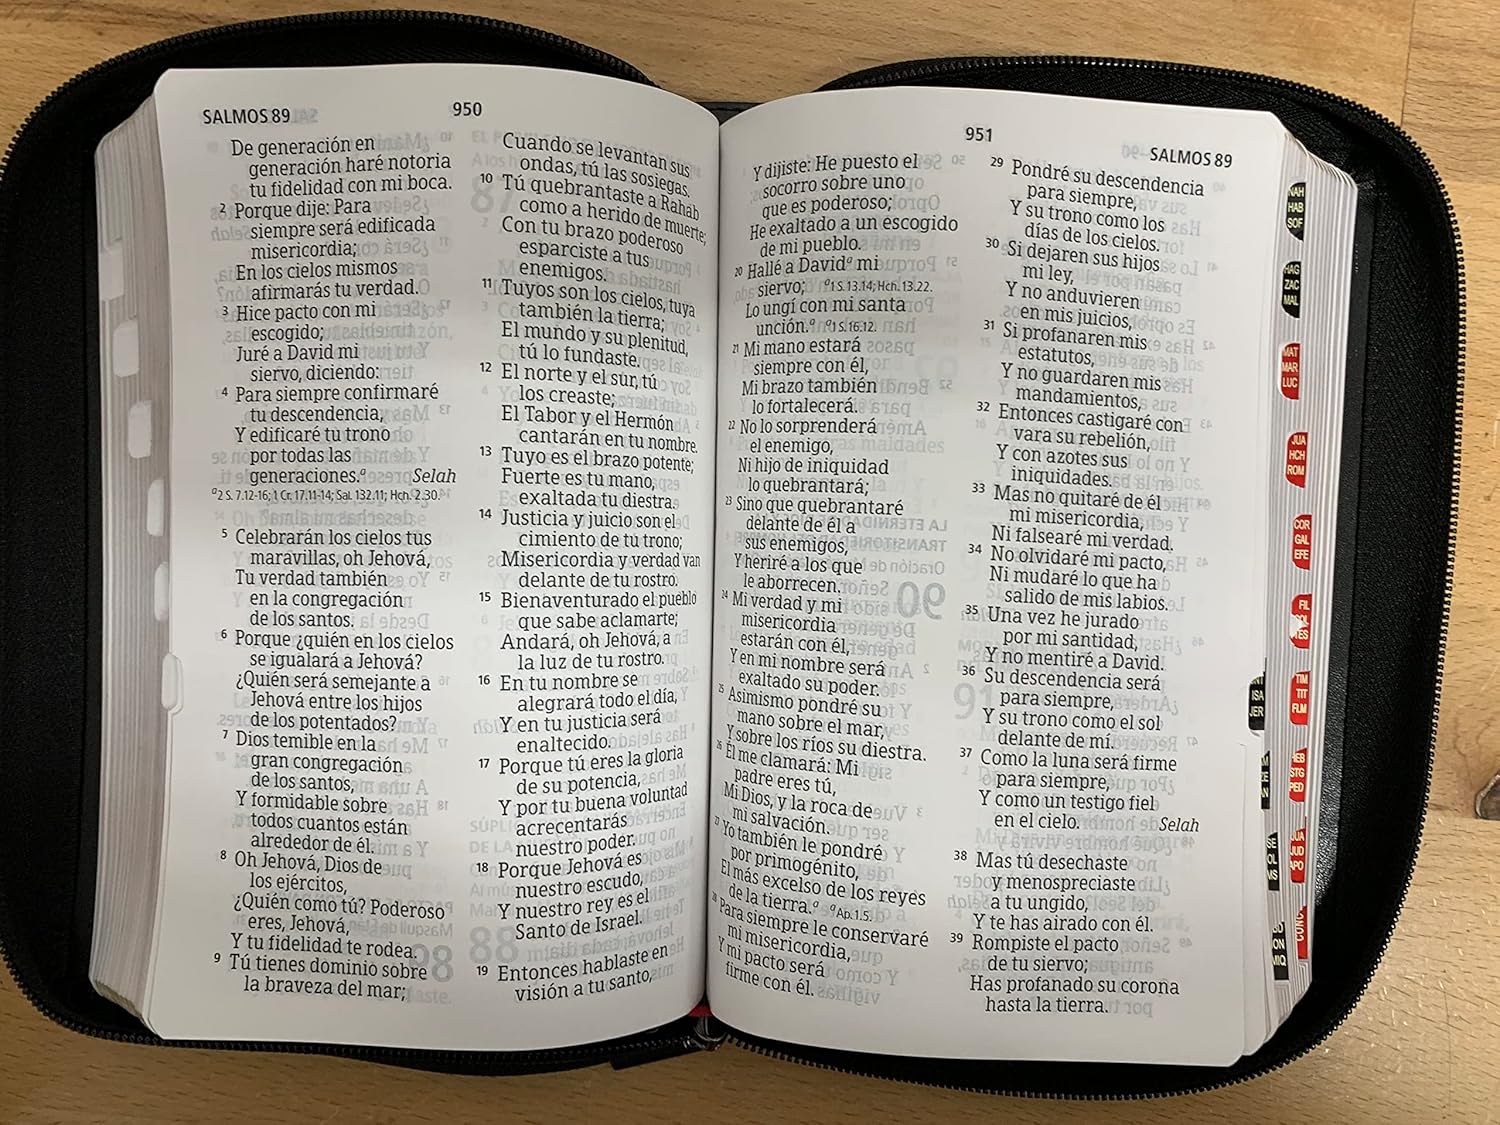 SALMOS 89
950
De generación en
generación haré notoria
tu fidelidad con mi boca.
2 Porque dije: Para
siempre será edificada
misericordia;
En los cielos mismos
afirmarás tu verdad.
3 Hice pacto con mi
escogido;
Juré a David mi
siervo, diciendo:
4 Para siempre confirmaré
tu descendencia,
Y edificaré tu trono
por todas las
generaciones.a Selah
a2 S. 7.12-16; 1 Cr. 17.11-14; Sal. 132.11; Hch. 2.30.
5 Celebrarán los cielos tus
maravillas, oh Jehová,
Tu verdad también
en la congregación
de los santos.
6 Porque ¿quién en los cielos
se igualará a Jehová?
¿Quién será semejante a
Jehová entre los hijos
de los potentados?
7 Dios temible en la
gran congregación
de los santos,
Y formidable sobre
todos cuantos están
alrededor de él.
8 Oh Jehová, Dios de
los ejércitos,
¿Quién como tú? Poderoso
eres, Jehová,
Y tu fidelidad te rodea.
9 Tú tienes dominio sobre
la braveza del mar;
Cuando se levantan sus
ondas, tú las sosiegas.
10 Tú quebrantaste a Rahab
como a herido de muerte;
Con tu brazo poderoso
esparciste a tus
enemigos.
11 Tuyos son los cielos, tuya
también la tierra;
El mundo y su plenitud,
tú lo fundaste.
12 El norte y el sur, tú
los creaste;
El Tabor y el Hermón
cantarán en tu nombre.
13 Tuyo es el brazo potente;
Fuerte es tu mano,
exaltada tu diestra.
14 Justicia y juicio son el
cimiento de tu trono;
Misericordia y verdad van
delante de tu rostro.
15 Bienaventurado el pueblo
que sabe aclamarte;
Andará, oh Jehová, a
la luz de tu rostro.
16 En tu nombre se
alegrará todo el día,
Y en tu justicia será
enaltecido.
17 Porque tú eres la gloria
de su potencia,
Y por tu buena voluntad
acrecentarás
nuestro poder.
18 Porque Jehová es
nuestro escudo,
Y nuestro rey es el
Santo de Israel.
19 Entonces hablaste en
visión a tu santo,
951
SALMOS 89
Y dijiste: He puesto el
socorro sobre uno
que es poderoso;
He exaltado a un escogido
de mi pueblo.
20 Hallé a Davida mi
siervo; a1 S. 13.14; Hch. 13.22.
Lo ungí con mi santa
unción.a a1 S. 16.12.
21 Mi mano estará
siempre con él,
Mi brazo también
lo fortalecerá.
22 No lo sorprenderá
el enemigo,
Ni hijo de iniquidad
lo quebrantará;
23 Sino que quebrantaré
delante de él a
sus enemigos,
Y heriré a los que
le aborrecen.
24 Mi verdad y mi
misericordia
estarán con él,
Y en mi nombre será
exaltado su poder.
25 Asimismo pondré su
mano sobre el mar,
Y sobre los ríos su diestra.
26 Él me clamará: Mi
padre eres tú,
Mi Dios, y la roca de
mi salvación.
27 Yo también le pondré
por primogénito,
El más excelso de los reyes
de la tierra.a aAp. 1.5.
28 Para siempre le conservaré
mi misericordia,
Y mi pacto será
firme con él.
29 Pondré su descendencia
para siempre,
Y su trono como los
días de los cielos.
30 Si dejaren sus hijos
mi ley,
Y no anduvieren
en mis juicios,
31 Si profanaren mis
estatutos,
Y no guardaren mis
mandamientos,
32 Entonces castigaré con
vara su rebelión,
Y con azotes sus
iniquidades.
33 Mas no quitaré de él
mi misericordia,
Ni falsearé mi verdad.
34 No olvidaré mi pacto,
Ni mudaré lo que ha
salido de mis labios.
35 Una vez he jurado
por mi santidad,
Y no mentiré a David.
36 Su descendencia será
para siempre,
Y su trono como el sol
delante de mí.
37 Como la luna será firme
para siempre,
Y como un testigo fiel
en el cielo. Selah
38 Mas tú desechaste
y menospreciaste
a tu ungido,
Y te has airado con él.
39 Rompiste el pacto
de tu siervo;
Has profanado su corona
hasta la tierra.
NAH
HAB
SOF
HAG
ZAC
MAL
MAT
MAR
LUC
JUA
HCH
ROM
COR
GAL
EFE
FIL
TES
TIM
TIT
FLM
ISA
JER
HEB
STG
PED
JUA
JUD
APO